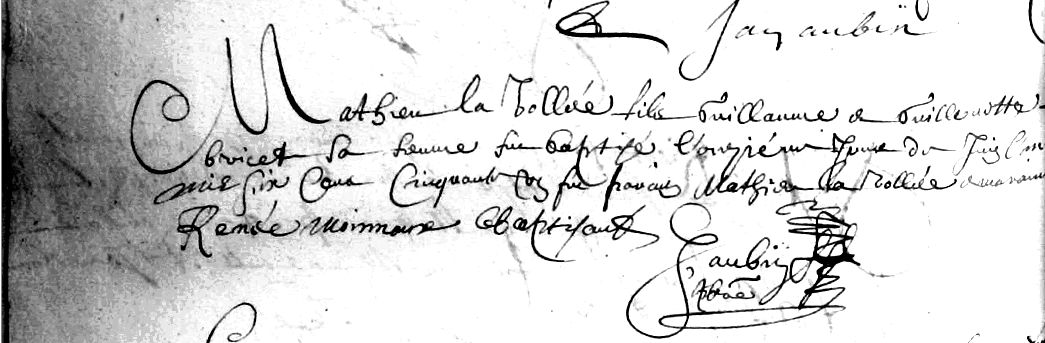 Jan aubin
Mathieu la Vollée filz Guillaume & Guillemette
bricet sa femme fut baptizé l'onziéme Jour de Juin l'an
mil six Cens Cinquante fut parain Mathieu la Vollée & maraine
Renée moinnoire baptisant
J aubin
pbre